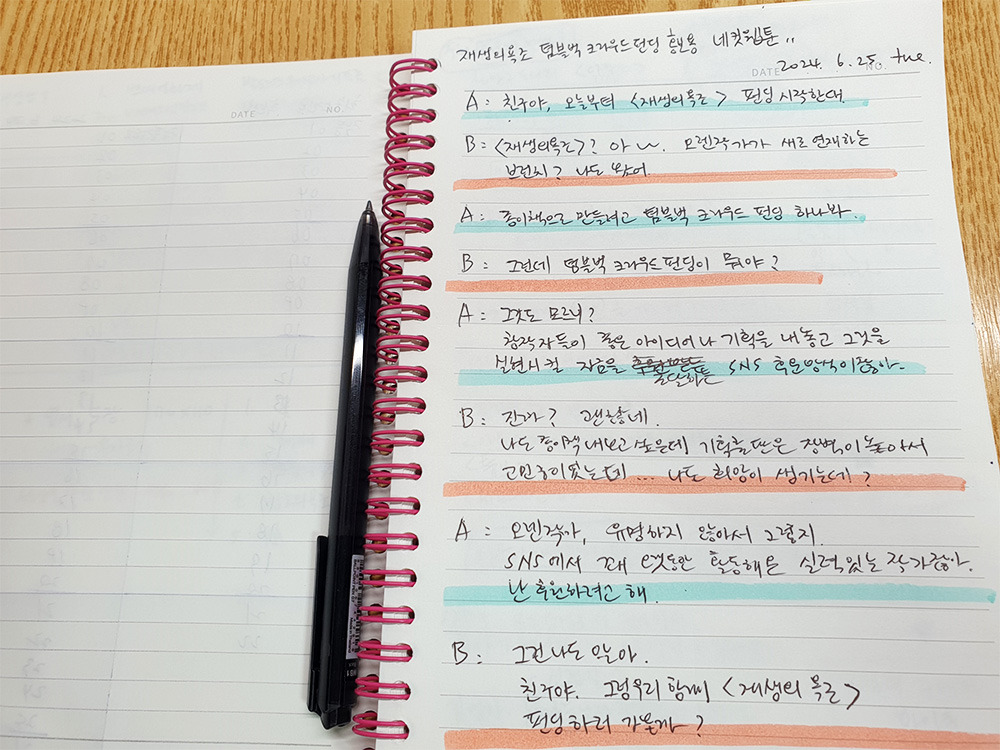 재생의욕조 텀블벅 크라우드펀딩 홍보용 네컷웹툰..
DATE 2024. 6. 25. tue. NO.
A: 친구야, 오늘부터 <재생의욕조> 펀딩 시작한대.
B: <재생의욕조>? 아~. 모렌작가가 새로 연재하는
브런치? 나도 봤어.
A: 종이책으로 만들려고 텀블벅 크라우드 펀딩 하나봐.
B: 그런데 텀블벅 크라우드펀딩이 뭐야?
A: 그것도 모르니?
창작자들이 좋은 아이디어나 기획을 내놓고 그것을
실현시킬 자금을 조달하는 SNS 후원방식이잖아.
B: 진짜? 괜찮네.
나도 종이책 내보고 싶은데 기획출판은 장벽이 높아서
고민중이었는데 ... 나도 희망이 생기는데?
A: 모렌작가, 유명하지 않아서 그렇지
SNS에서 꽤 오랫동안 활동해온 실력있는 작가잖아.
난 후원하려고 해.
B: 그건 나도 알아.
친구야. 그럼 우리 함께 <재생의 욕조>
펀딩하러 가볼까?
DATE NO.